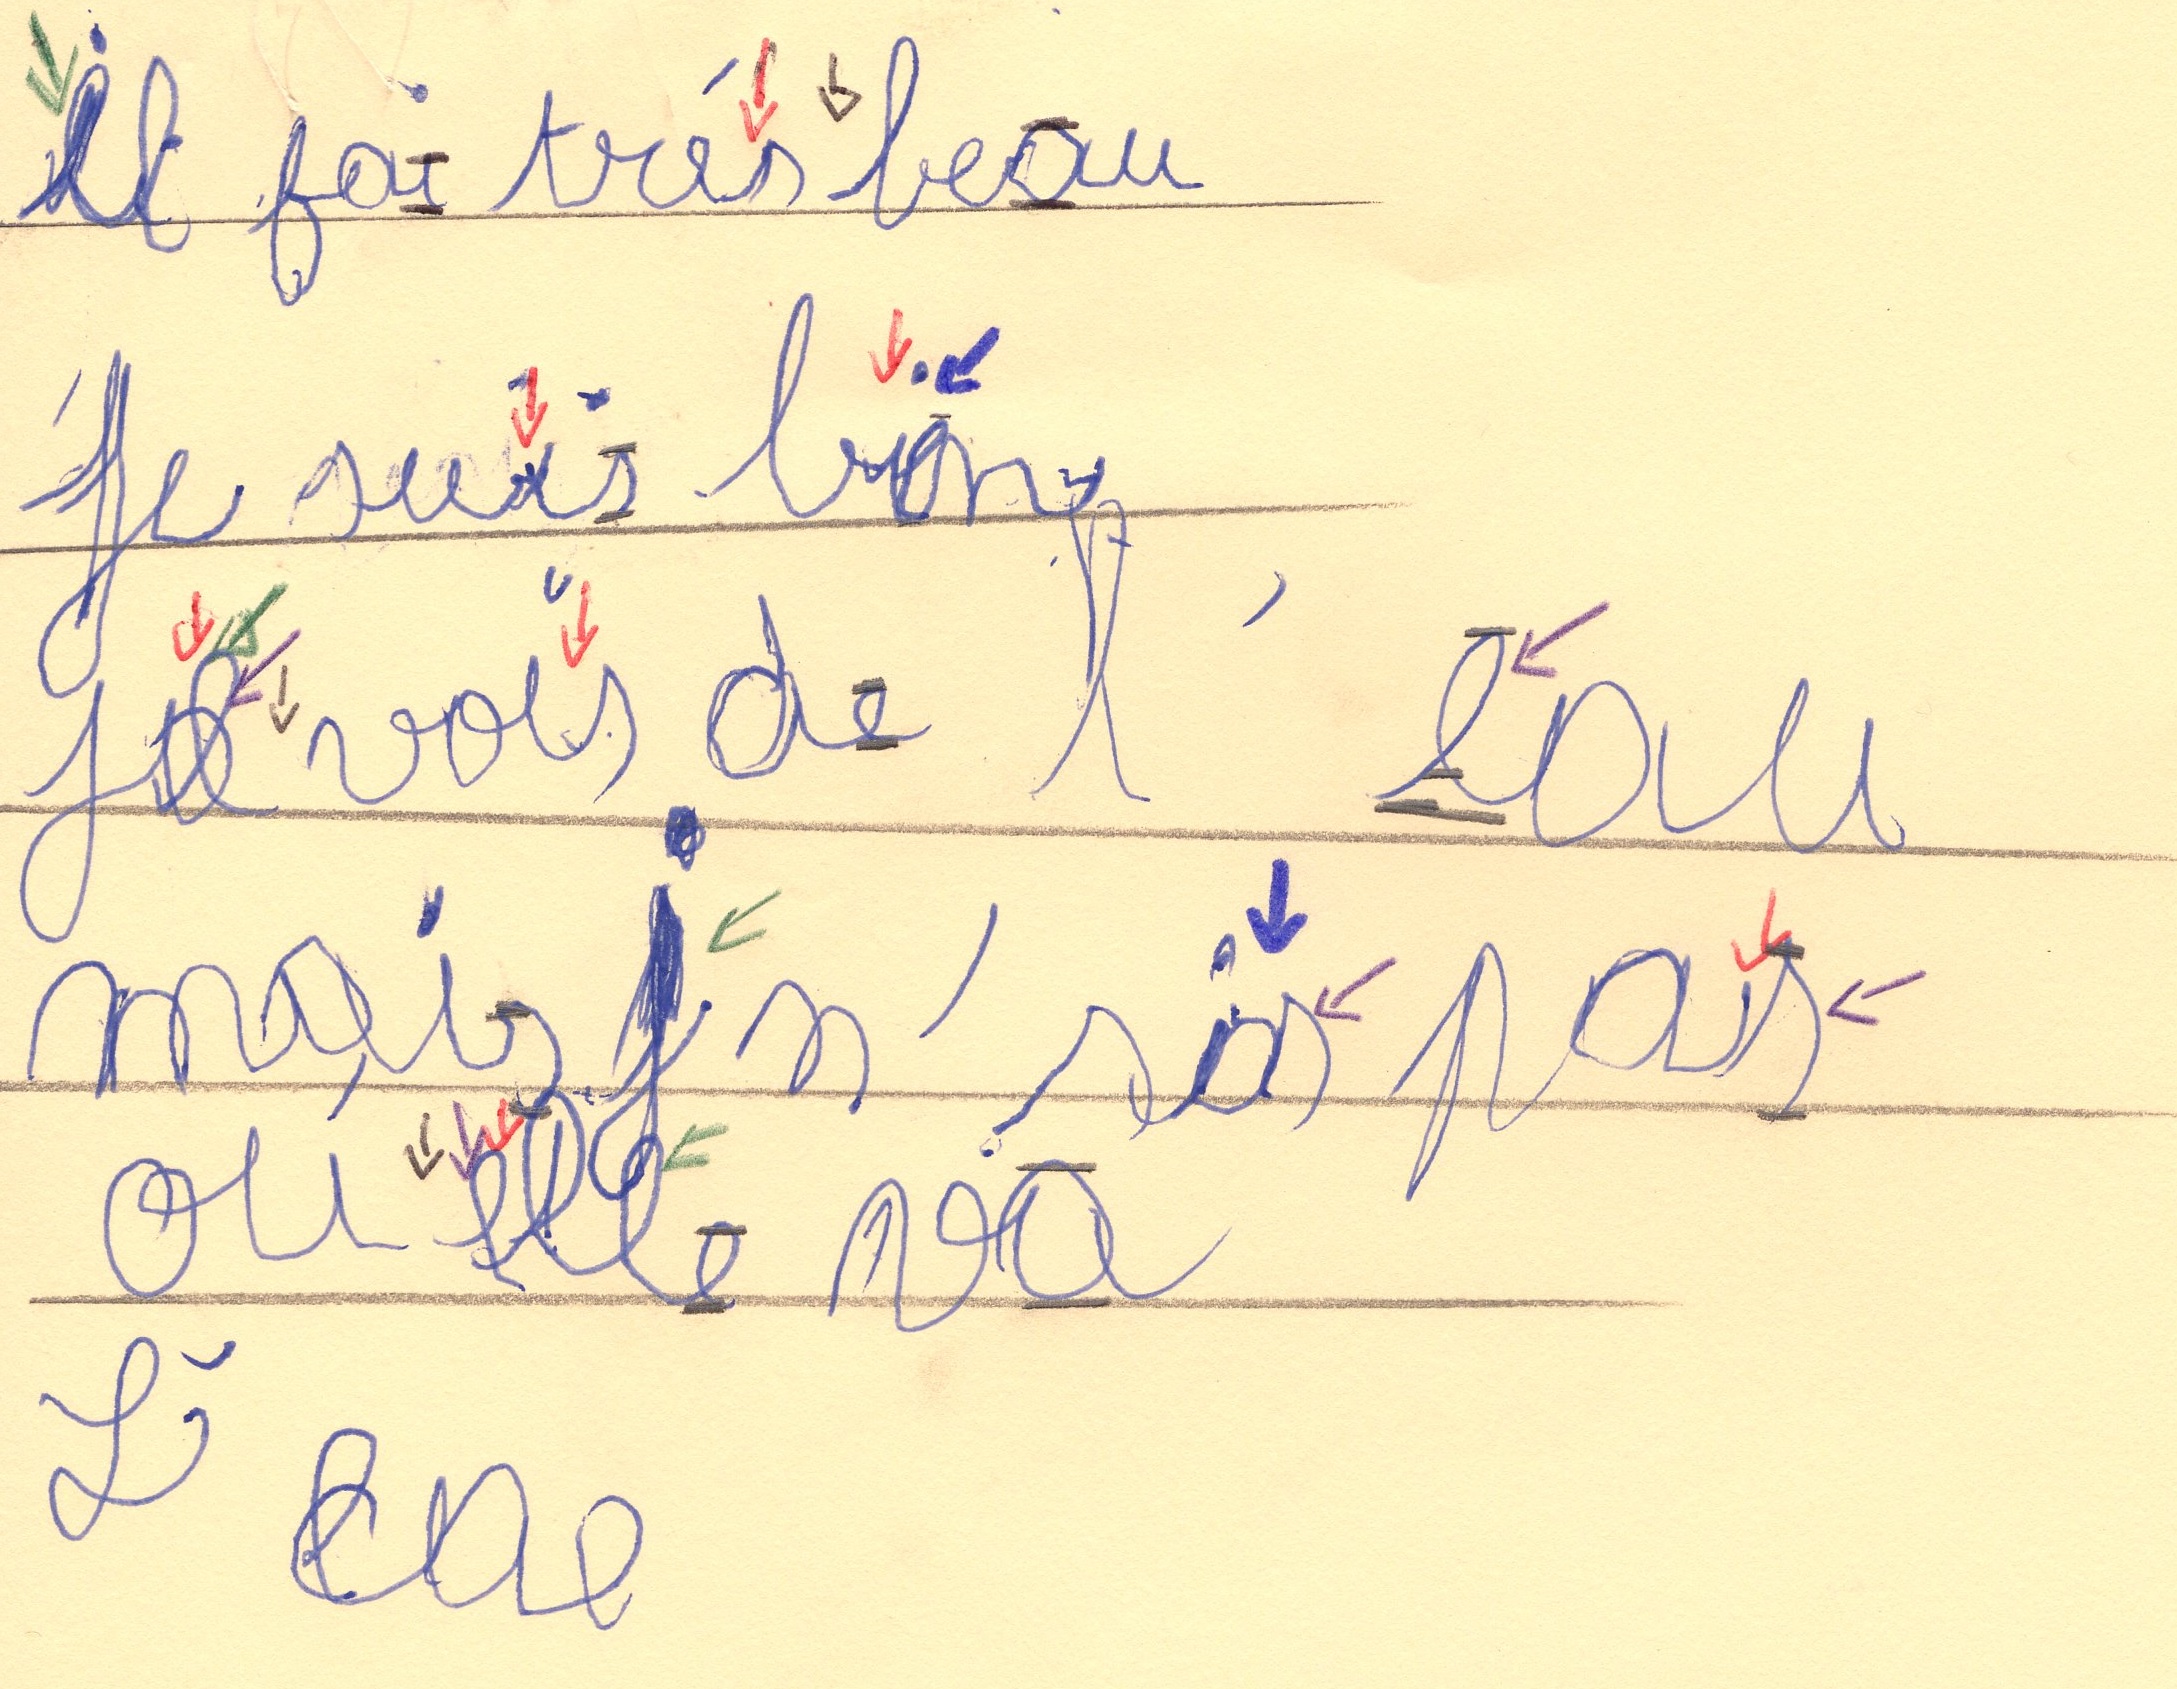 il fai trés beau
Je suis bien
je vois de l'eau
mais j n' sais pas
ou elle va